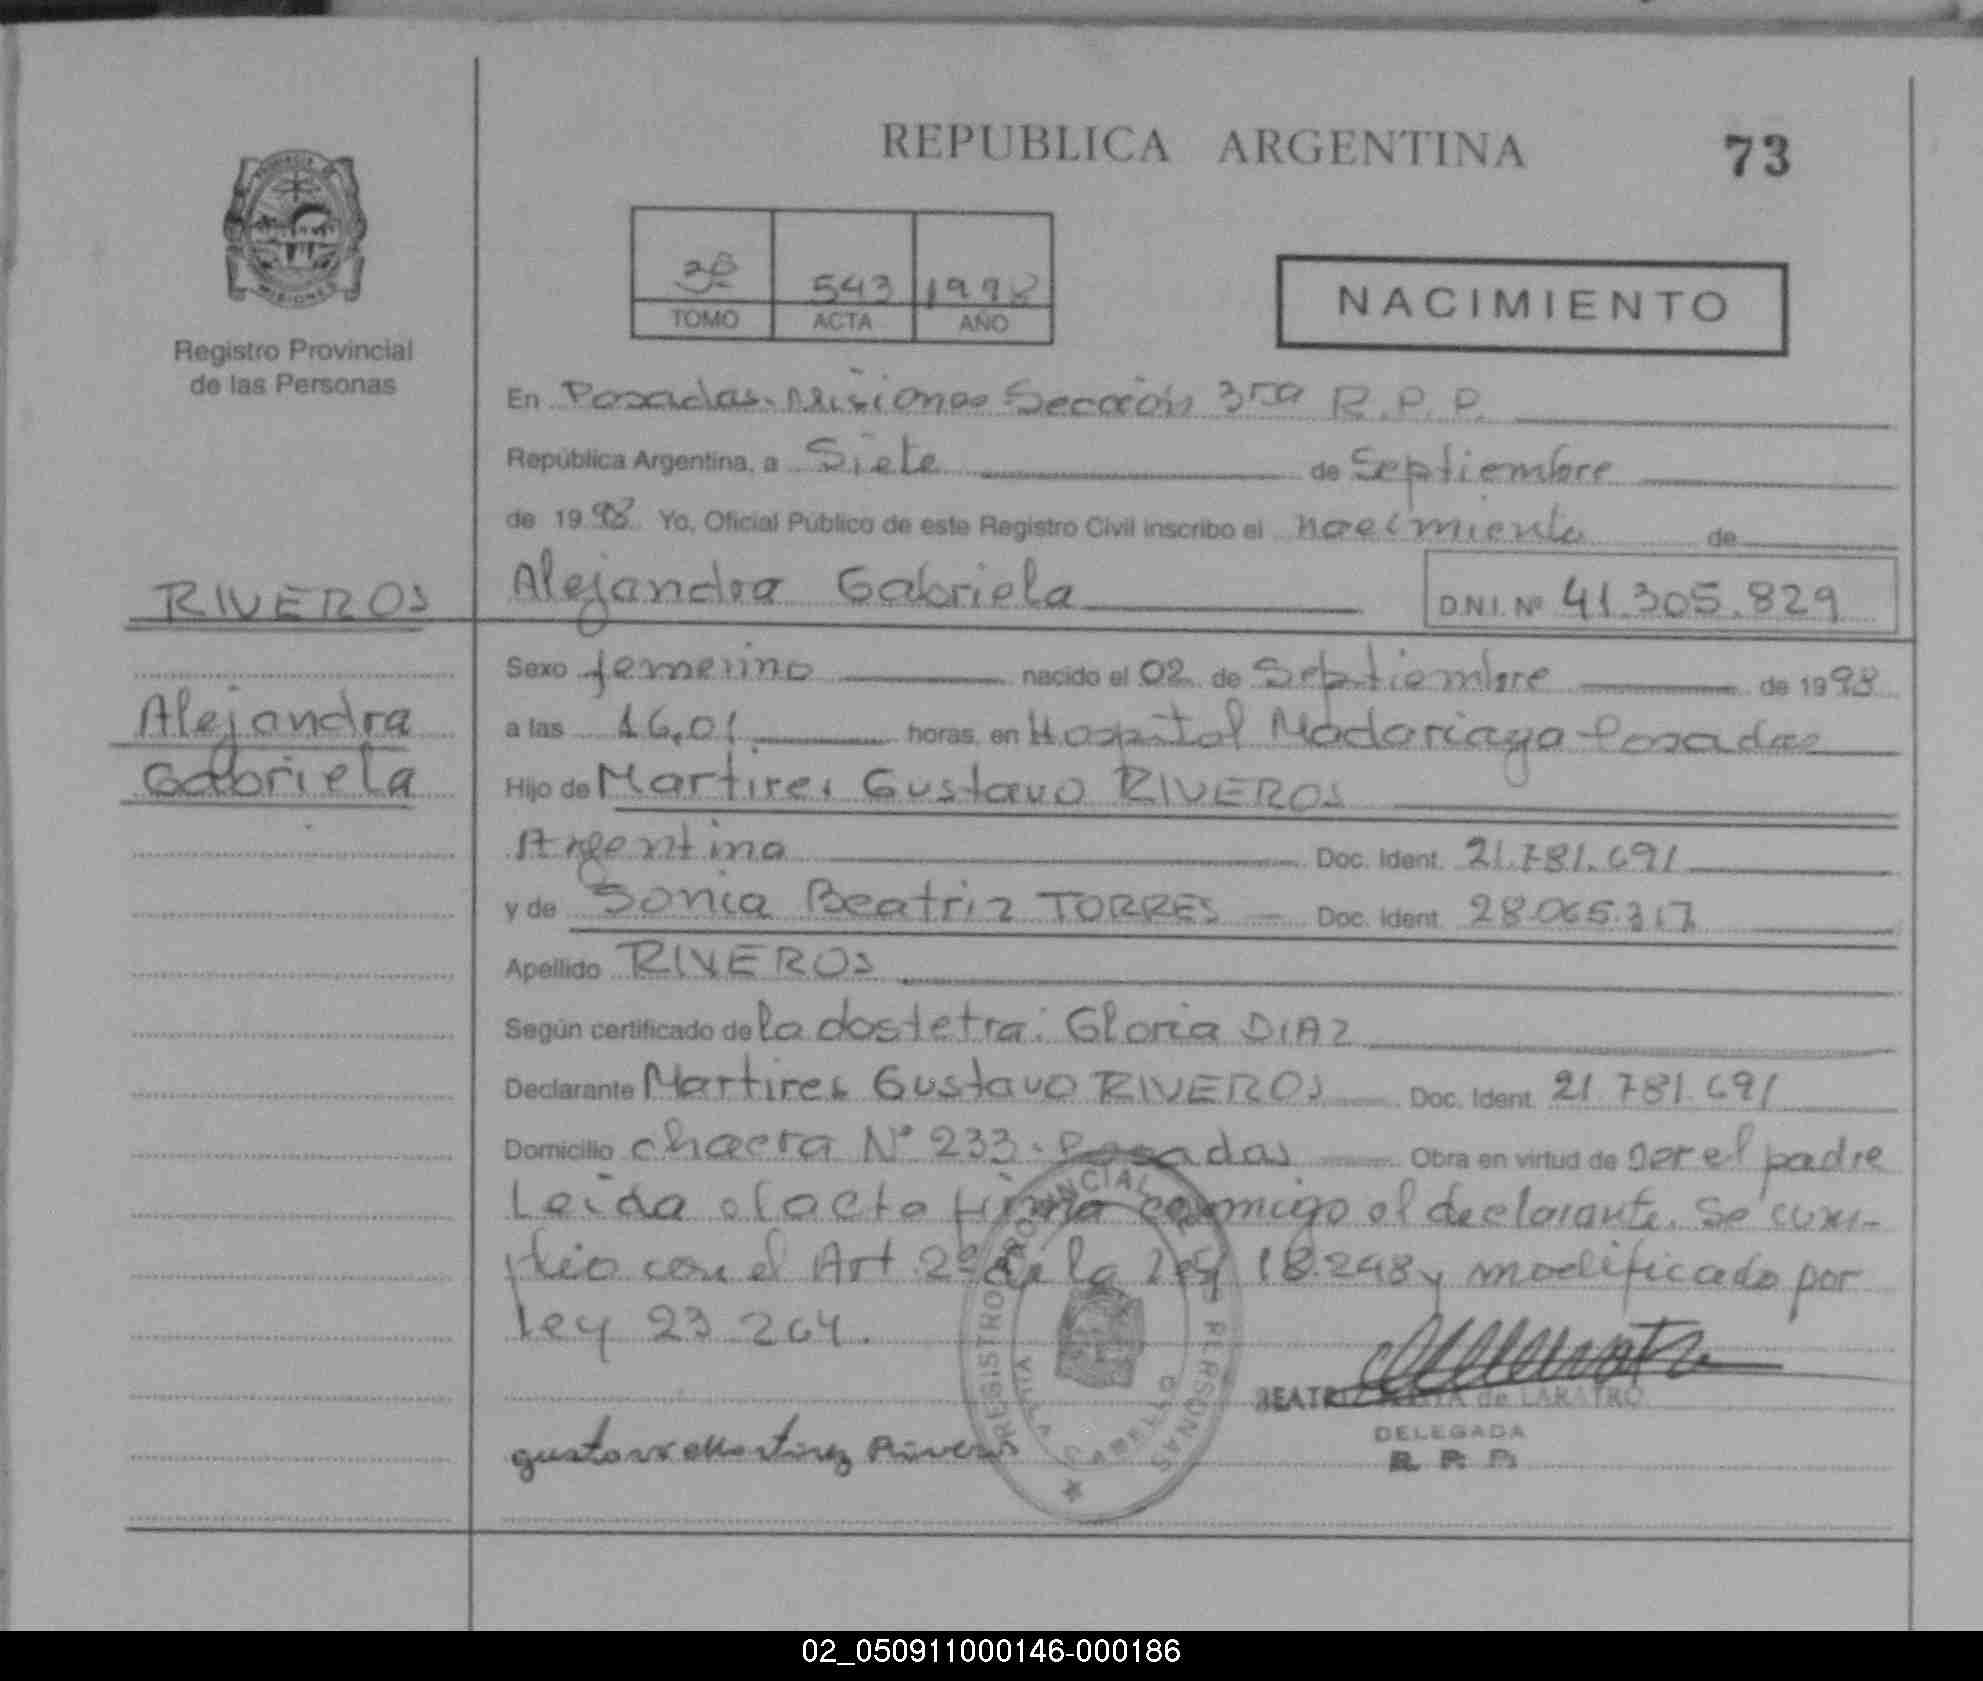 REPUBLICA ARGENTINA 73
MISIONES
Registro Provincial
de las Personas
543 1998
TOMO ACTA AÑO
NACIMIENTO
En Posadas. Misiones Sección 3ra R.P.P.
República Argentina, a Siete de Septiembre
de 1998 Yo, Oficial Público de este Registro Civil inscribo el nacimiento de
RIVEROS Alejandra Gabriela D.N.I. Nº 41.305.829
Sexo femenino nacido el 02 de Septiembre de 1998
Alejandra a las 16,01 horas, en Hospital Madariaga Posadas
Gabriela Hijo de Martires Gustavo RIVEROS
Argentina Doc. Ident. 21.781.691
y de Sonia Beatriz TORRES Doc. Ident. 28.065.317
Apellido RIVEROS
Según certificado de la dostetra: Gloria DIAZ
Declarante Martires Gustavo RIVEROS Doc. Ident. 21.781.691
Domicilio chacra Nº 233. Posadas Obra en virtud de ser el padre
Leida el acta firma conmigo el declarante. Se cum-
plio con el Art 2º de la Ley 18.248 y modificado por
Ley 23 264.
REGISTRO PROVINCIAL PERSONAS
BEATRIZ de LARATRO
DELEGADA
R. P. P.
gustavo Martirez Riveros
02_050911000146-000186